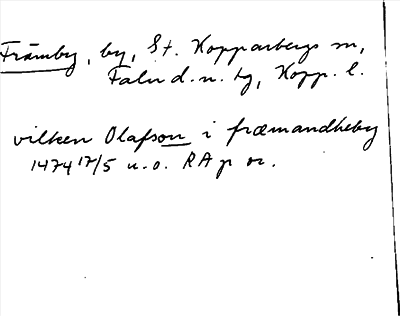 Främby, by, St. Kopparbergs sn,
Falu d. n. tg, Kopp. l.
vilken Olafson i fræmandheby
1474 17/5 u.o. RAp or.